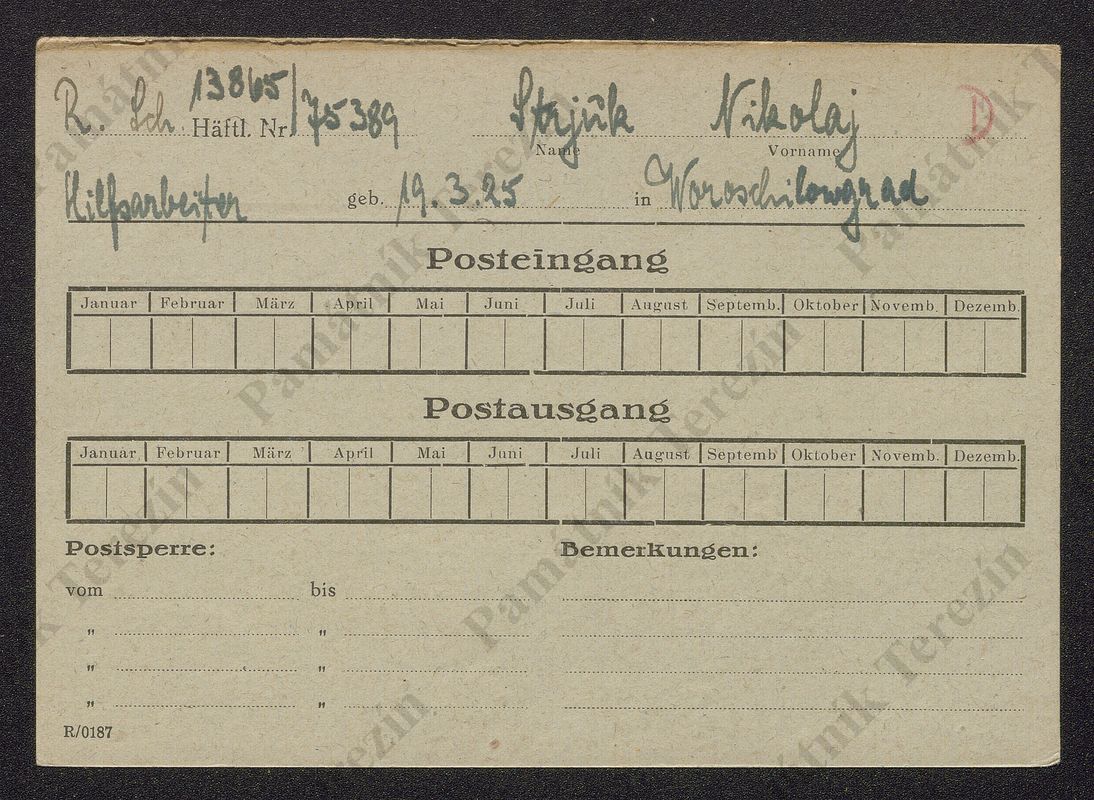 R. Sch. Häftl. Nr 13865/75389 Strjuk Nikolaj
Name Vorname
Hilfsarbeiter geb. 19.3.25 in Woroschilowgrad
Posteingang
Januar Februar März April Mai Juni Juli August Septemb. Oktober Novemb. Dezemb.
Postausgang
Januar Februar März April Mai Juni Juli August Septemb Oktober Novemb. Dezemb.
Postsperre: Bemerkungen:
vom bis
" "
" "
" "
R/0187
Památník Terezín